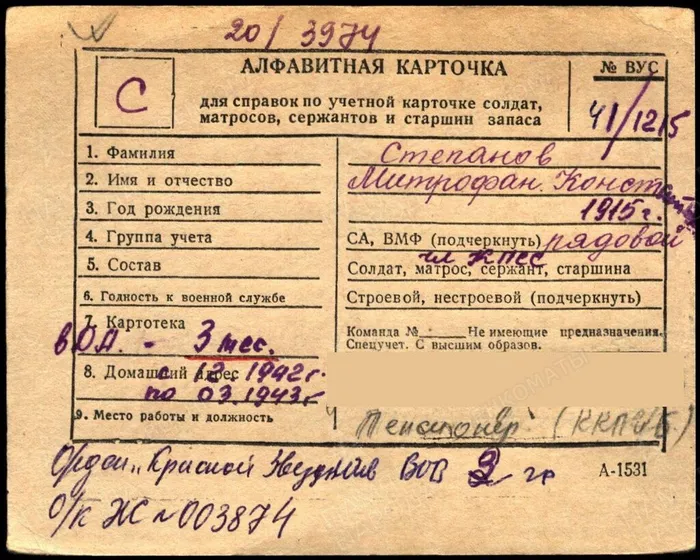 20/3974
АЛФАВИТНАЯ КАРТОЧКА
№ ВУС
С
для справок по учетной карточке солдат,
матросов, сержантов и старшин запаса
41/1215
1. Фамилия
Степанов
2. Имя и отчество
Митрофан. Констант
3. Год рождения
1915 г.
4. Группа учета
СА, ВМФ (подчеркнуть) рядовой
чл КПСС
5. Состав
Солдат, матрос, сержант, старшина
6. Годность к военной службе
Строевой, нестроевой (подчеркнуть)
7. Картотека
Команда № Не имеющие предназначения.
Спецучет. С высшим образов.
вОА. - 3 мес.
8. Домашний адрес
с 12. 1942г.
по 03.1943г.
9. Место работы и должность
Пенсионер
Орден „Красной Звезды ВОВ гр
А-1531
О/к Ж № 003874